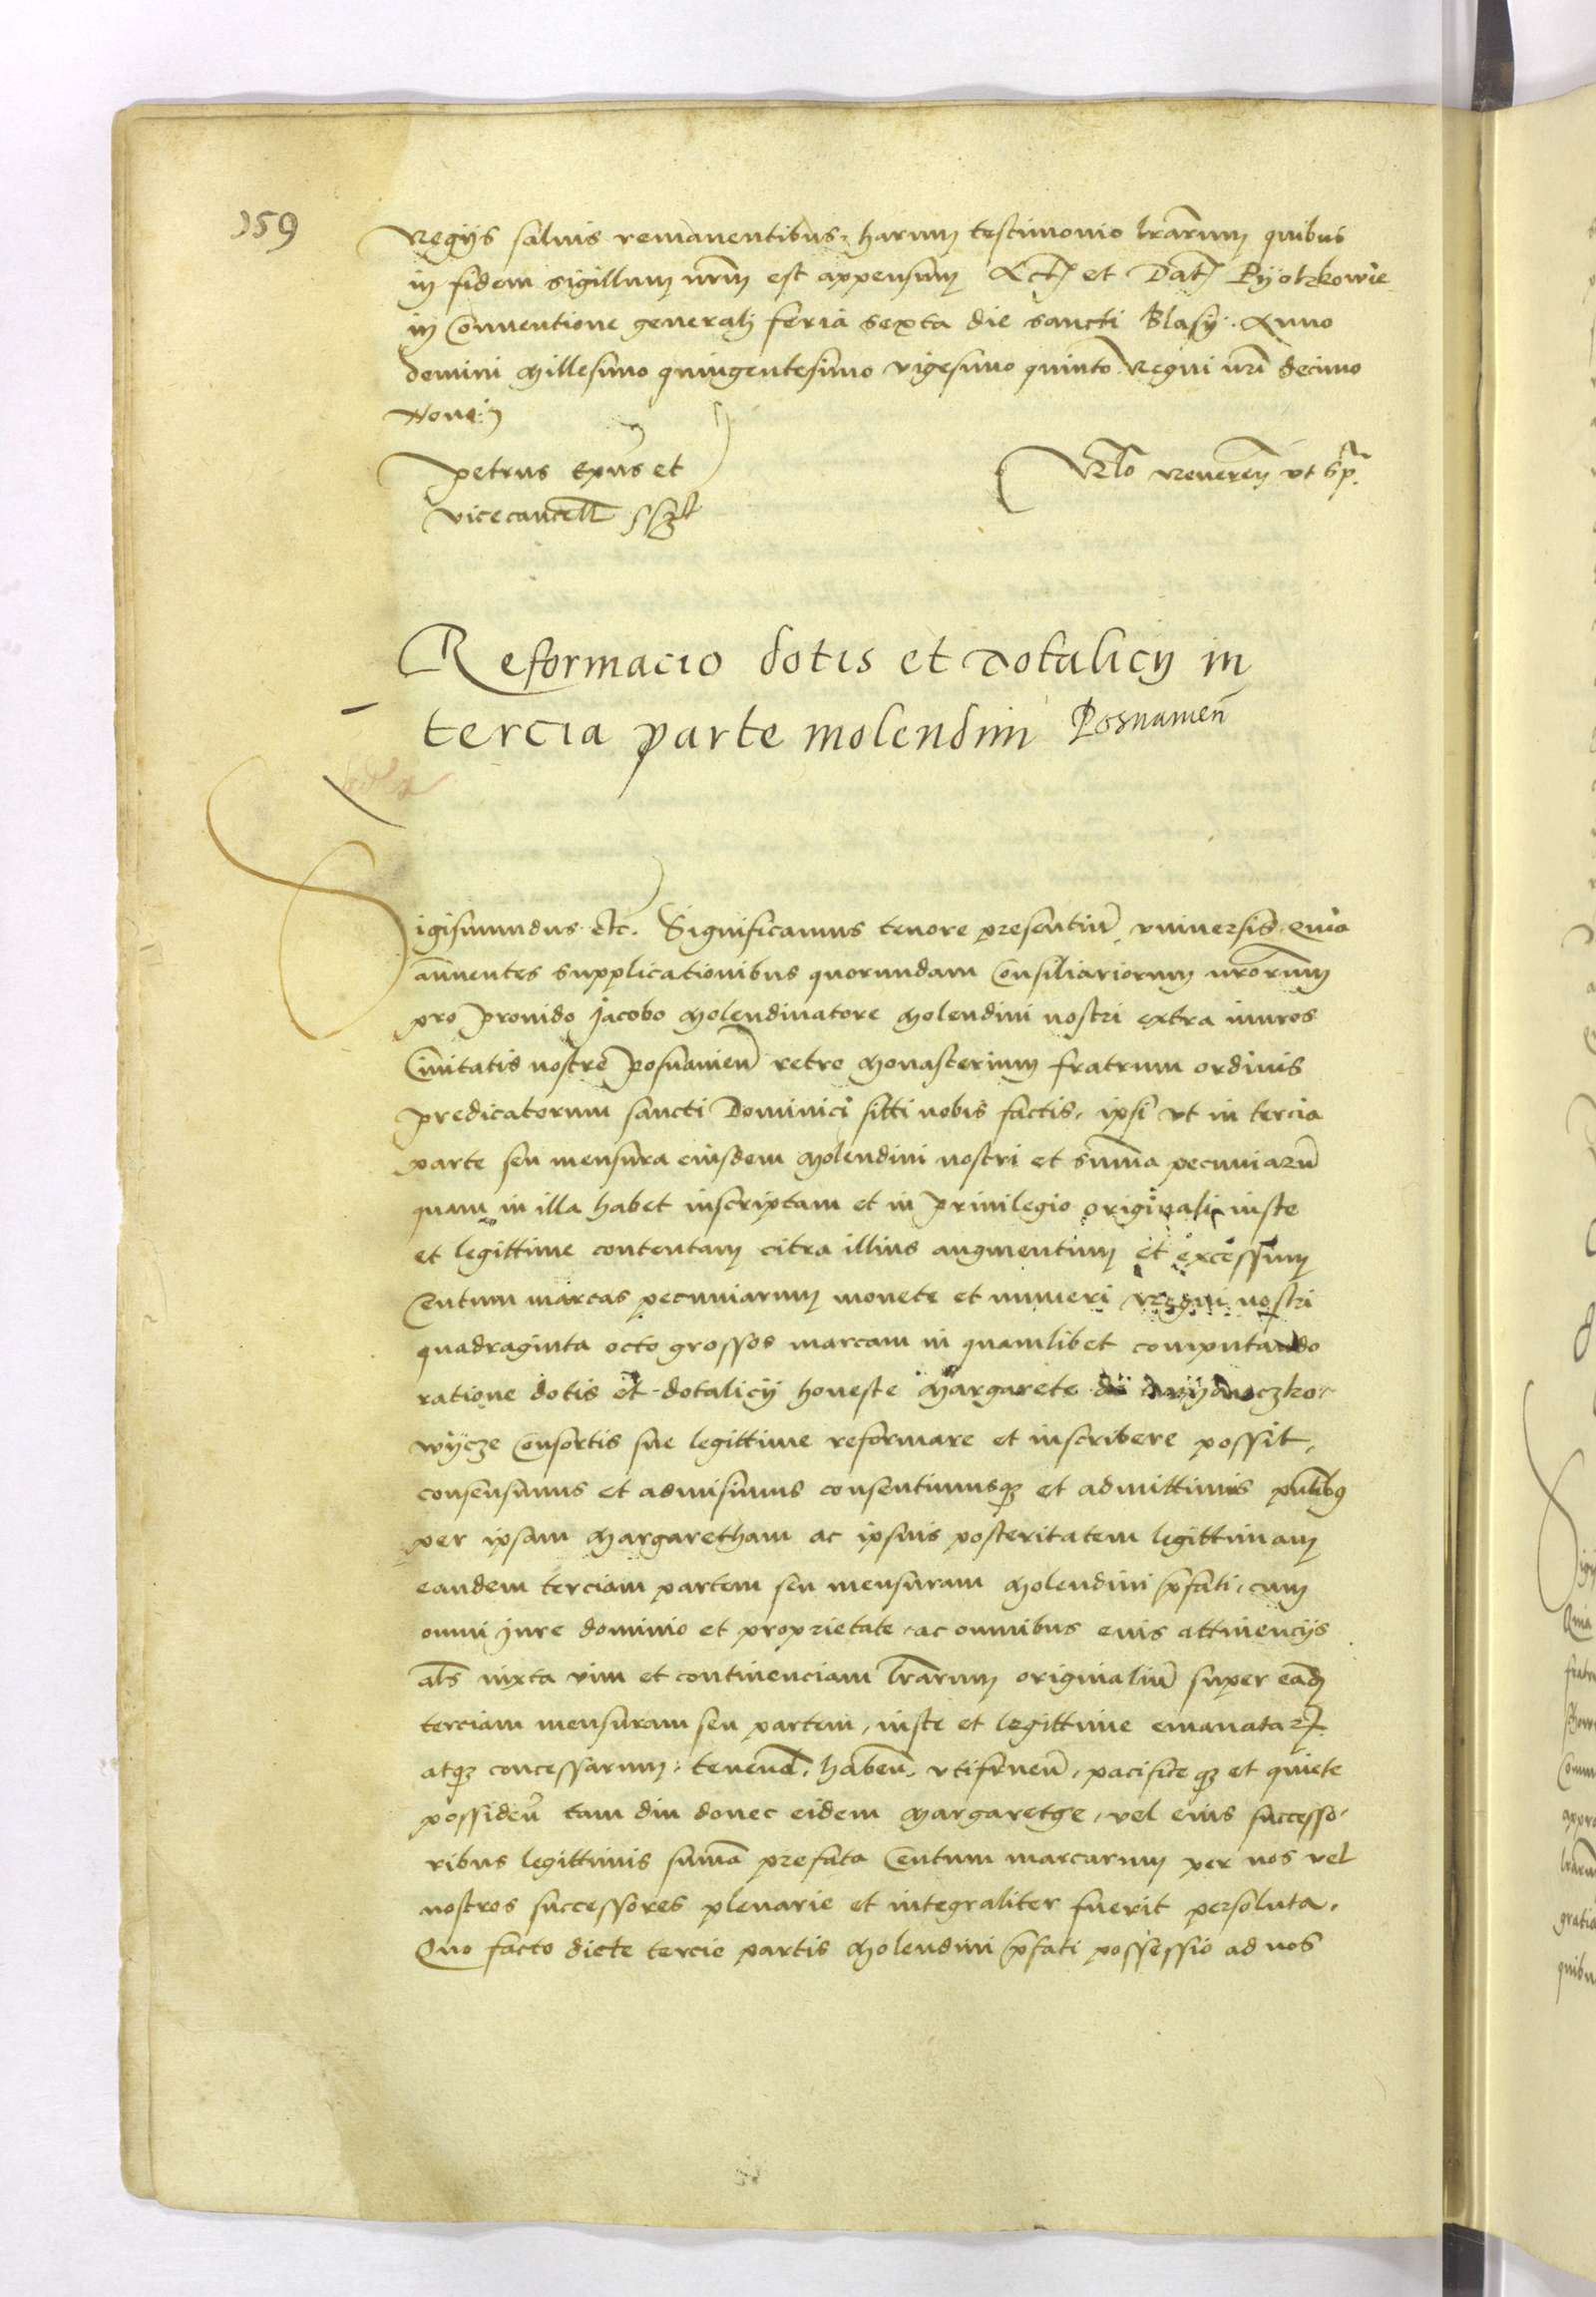 159
Regijs salvis remanentibus harum testimonio lrarum quibus
in fidem sigillum nrm est appensum Act et Dat Pyotrkowie
in Conventione generali feria sexta die sancti Blasij Anno
domini Millesimo quingentesimo vigesimo quinto Regni nri decimo
Nono
Petrus Epus et
vicecancell sszt
Rlo Reveren ut sp.
Reformacio dotis et dotalicij in
tercia parte molendini Posnanien
Sigismundus etc. Significamus tenore presentium universis Quia
annuentes supplicationibus quorundam Consiliariorum nrorum
pro provido Jacobo Molendinatore Molendini nostri extra muros
Civitatis nostre Posnanien retro Monasterium fratrum ordinis
predicatorum sancti Dominici sitti nobis factis, ipsi ut in tercia
parte seu mensura eiusdem Molendini nostri et summa pecuniarum
quam in illa habet inscriptam et in privilegio originali iuste
et legittime contentam citra illius augmentum et excessum
Centum marcas pecuniarum monete et numeri Regni nostri
quadraginta octo grossos marcam in quamlibet computando
ratione dotis et dotalicij honeste Margarete
wycze Consortis sue legittime reformare et inscribere possit,
consensimus et admisimus consentimusq et admittimus pntibus
per ipsam Margaretham ac ipsius posteritatem legittimam
eandem terciam partem seu mensuram Molendini pfati, cum
omni jure dominio et proprietate ac omnibus eius attinencijs
als iuxta vim et continenciam lrarum originalium super eadem
terciam mensuram seu partem, iuste et legittime emanatar
atq concessarum, tenend, haben, utifruen, pacifice q et quiete
possiden tam diu donec eidem Margarethe, vel eius successo
ribus legittimis summa prefata Centum marcarum per nos vel
nostros successores plenarie et integraliter fuerit persoluta.
Quo facto dicte tercie partis Molendini pfati possessio ad nos